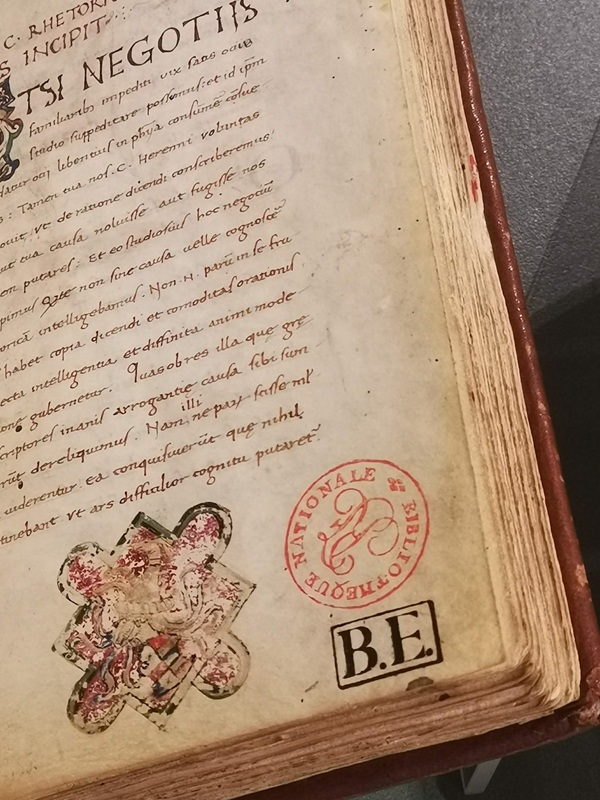 C. RHETORI
S INCIPIT
TSI NEGOTIIS
familiarib; impediti vix satis ociũ
studio suppeditare possumus: et id ipm̃
ocij libentius in phỹa consumẽ
s: Tamen tua nos .C. Herenni voluntas
ouit, vt de ratione dicendi conscriberemus:
ut tua causa noluisse aut fugisse nos
em putares: Et eo studiosius hoc negociũ
pimus non sine causa uelle cognoscẽ
oricã intelligebamus. Non .n. parũ in se fru
habet copia dicendi et comoditas orationis
ecta intelligentia et diffinita animi mode
one gubernetur. Quas ob res illa quę grę
criptores inanis arrogantię causa sibi sum
rũt dereliquimus. Nam illi ne parũ scisse
uiderentur ea conquisiuerũt quę nihil
tinebant vt ars difficilior cognitu putaretᵘ.
BIBLIOTHEQUE NATIONALE
B.E.